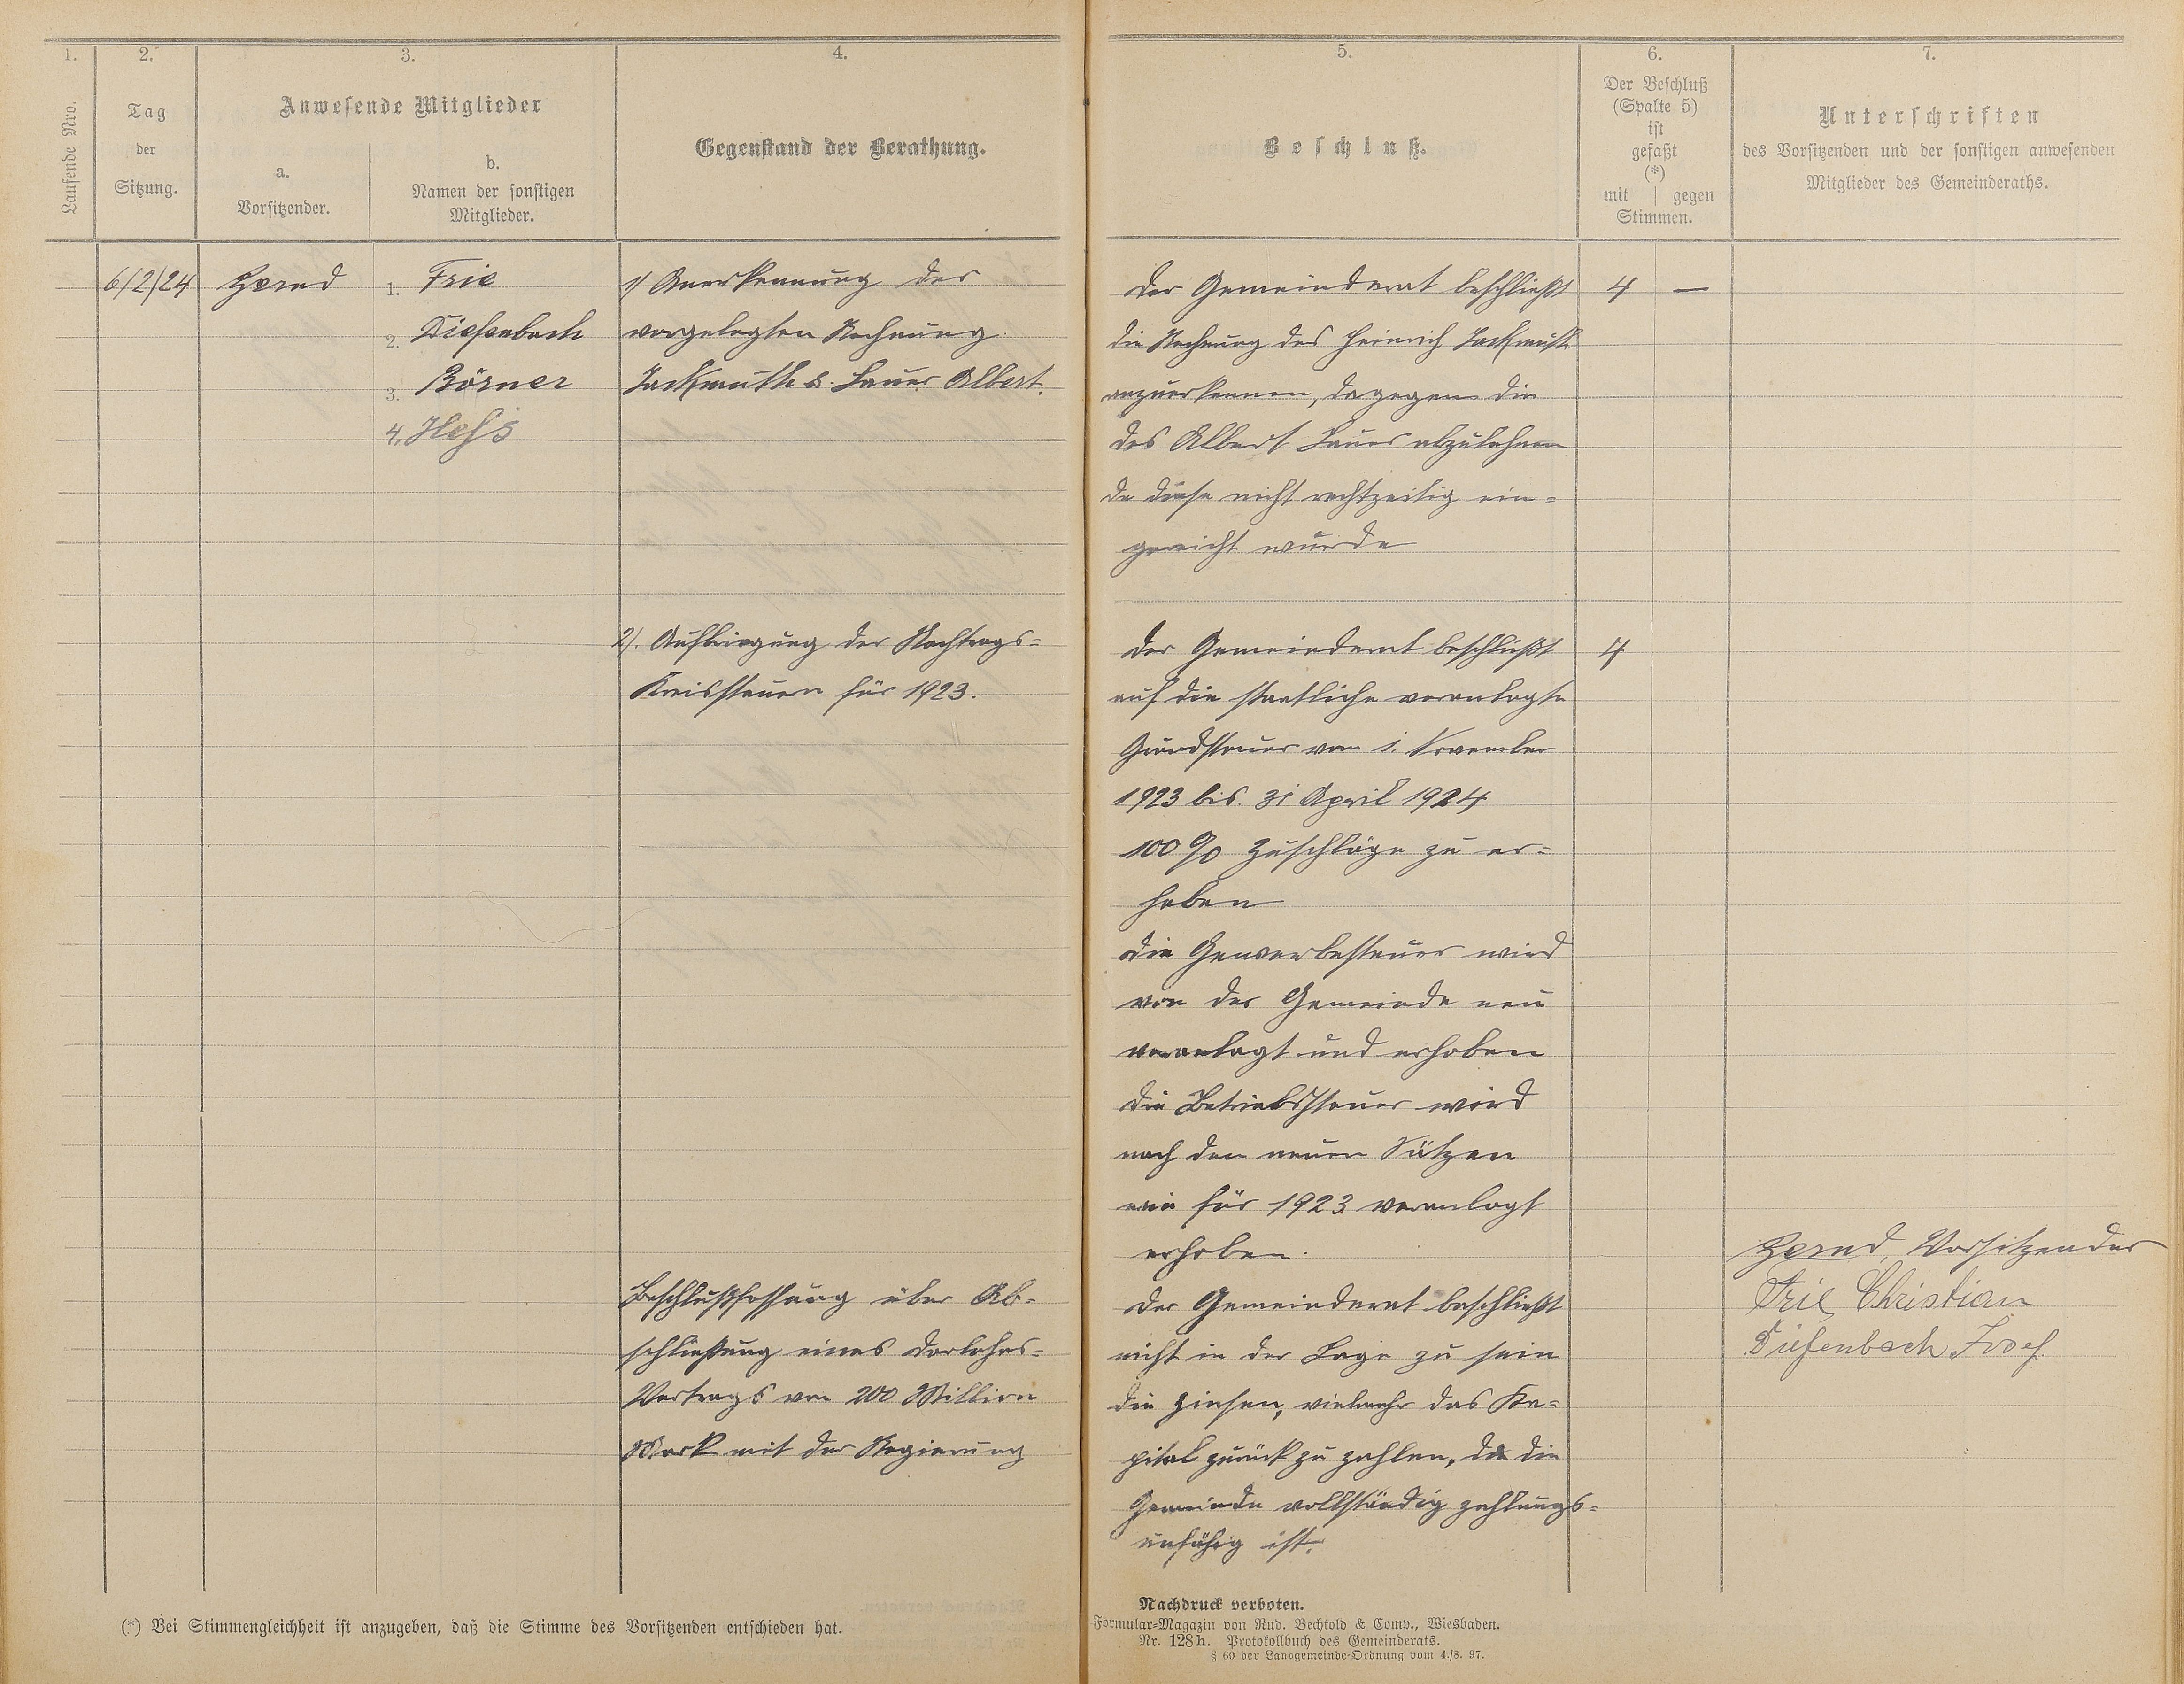 1.
2.
3.
4.
Laufende Nro.
Tag
der
Sitzung.
Anwesende Mitglieder
a.
Vorsitzender.
b.
Namen der sonstigen
Mitglieder.
Gegenstand der Berathung.
6/2/24
1. Frie
2. Diefenbach
3. Börner
4. Heß
1) Anerkennung der
vorgelegten Rechnung
Jackmuth u. Lauer Albert.
2). Aufbringung der Nachtrags-
Kreissteuern für 1923.
Beschlußfassung über Ab-
schließung eines Darlehns-
Vertrags von 200 Million
Mark mit der Regierung
(*) Bei Stimmengleichheit ist anzugeben, daß die Stimme des Vorsitzenden entschieden hat.
5.
6.
7.
Beschluß.
Der Beschluß
(Spalte 5)
ist
gefaßt
(*)
mit | gegen
Stimmen.
Unterschriften
des Vorsitzenden und der sonstigen anwesenden
Mitglieder des Gemeinderaths.
Der Gemeinderat beschließt
die Rechnung des Heinrich Jackmuth
anzuerkennen, dagegen die
des Albert Lauer abzulehnen
da diese nicht rechtzeitig ein-
gereicht wurde
4 —
Der Gemeinderat beschließt
auf die staatliche veranlagte
Grundsteuer vom 1. November
1923 bis 31 April 1924
100 % Zuschläge zu er-
heben
Die Gewerbesteuer wird
von der Gemeinde neu
veranlagt und erhoben
Die Betriebssteuer wird
nach den neuen Sätzen
wie für 1923 veranlagt
erhoben.
4
Der Gemeinderat beschließt
nicht in der Lage zu sein
die Zinsen, vielmehr das Ka-
pital zurück zu zahlen, da die
Gemeinde vollständig zahlungs-
unfähig ist.
Vorsitzender
Frie Christian
Diefenbach Josef
Nachdruck verboten.
Formular-Magazin von Rud. Bechtold & Comp., Wiesbaden.
Nr. 128 h. Protokollbuch des Gemeinderats.
§ 60 der Landgemeinde-Ordnung vom 4./8. 97.